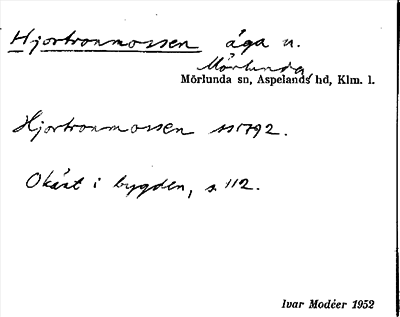 Hjortronmossen äga u.
Mörlunda
Mörlunda sn, Aspelands hd, Klm. l.
Hjortronmossen
Okänt i bygden, s. 112.
Ivar Modéer 1952